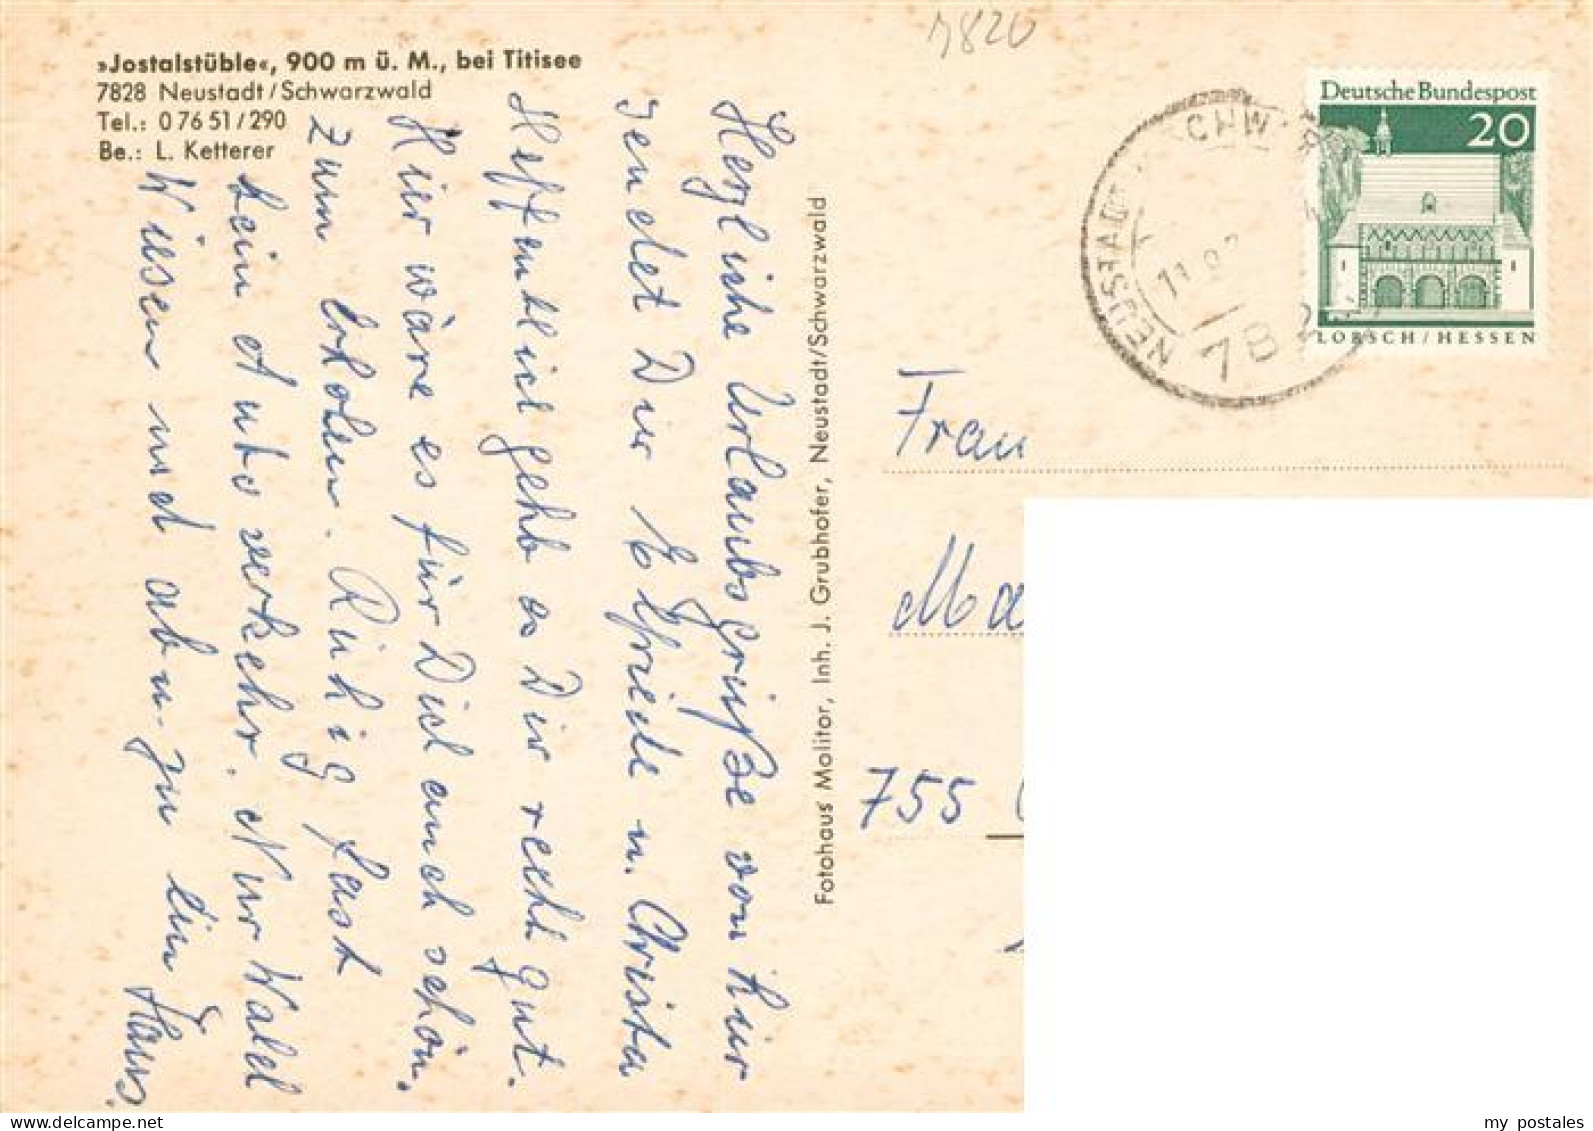 7820
»Jostalstüble«, 900 m ü. M., bei Titisee
7828 Neustadt/Schwarzwald
Tel.: 0 76 51/290
Be.: L. Ketterer
Herzliche Urlaubsgrüße von hier
sendet Dir Elfriede u. Christa
Hoffentlich geht es Dir recht gut.
Hier wäre es für Dich auch schön.
zum Erholen. Ruhig fast
kein Autoverkehr. Nur Wald
Wiesen und ab u. zu ein Haus.
Fotohaus Molitor, Inh. J. Grubhofer, Neustadt/Schwarzwald
Deutsche Bundespost
20
LORSCH/HESSEN
NEUSTADT SCHW
11
782
Frau
Ma
755
my postales